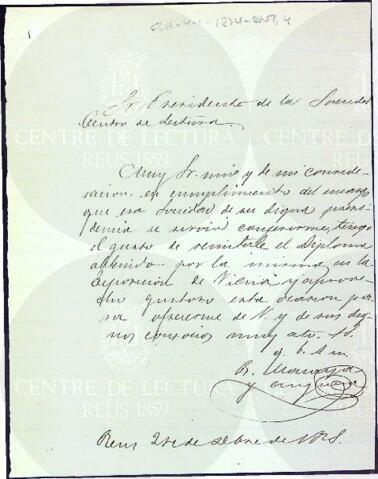 Sr. Presidente de la Sociedad
Centro de Lectura
Muy Sr. mio y de mi conside-
racion: en cumplimiento del encargo
que esa Sociedad de su digna presi-
dencia se sirvió conferirme, tengo
el gusto de remitirle el Diploma
obtenido por la misma en la
Exposicion de Viena y aprove-
cho gustoso esta ocasion pa-
ra ofrecerme de V. y de sus dig-
nos consocios muy ato. S. S.
q. b. s. m.
y
Reus 2 de de
CENTRE DE LECTURA
REUS 1859
CENTRE DE LECTURA
REUS 1859